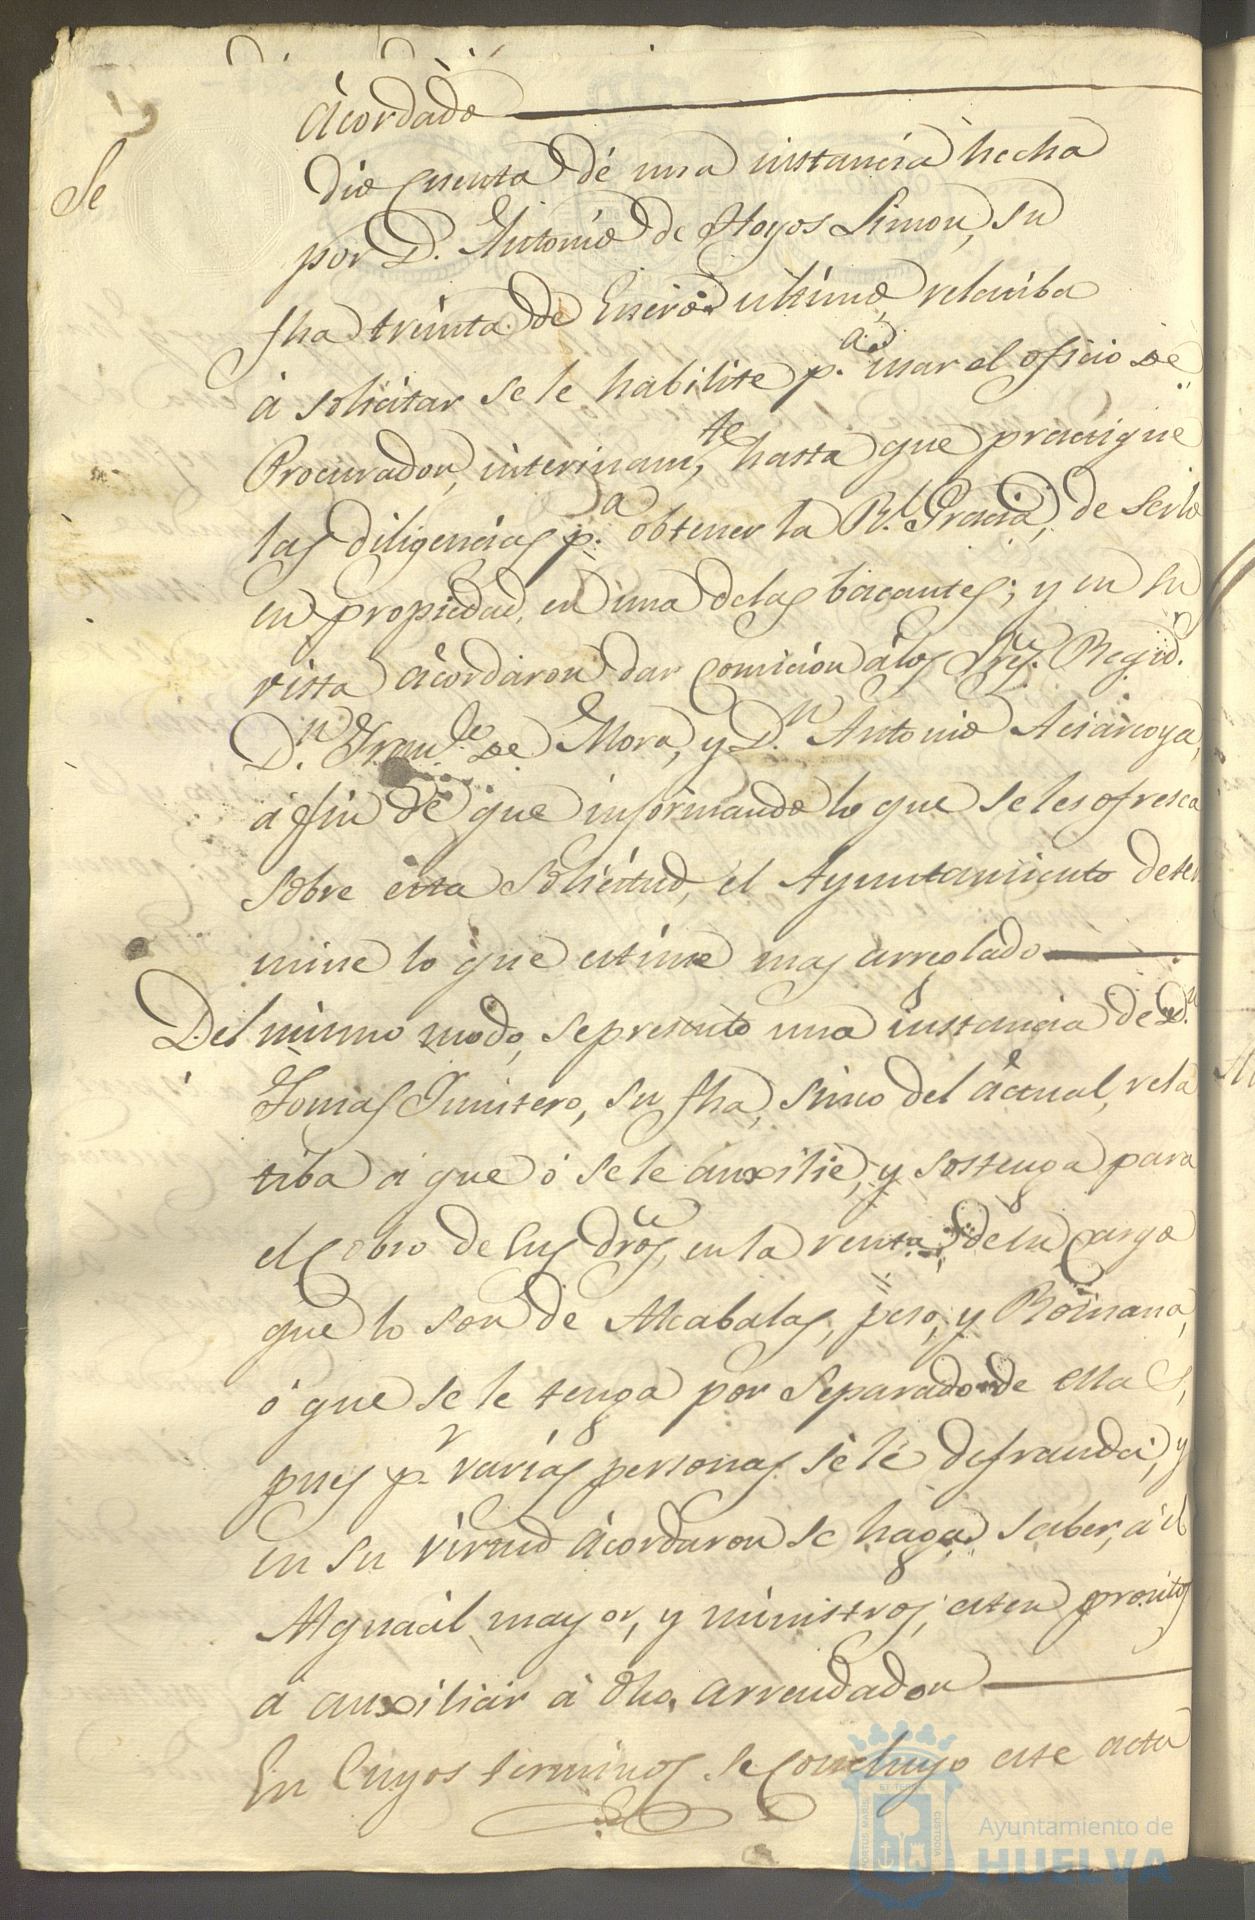 acordado
Se dio cuenta de una instancia hecha
por D. Antonio de Hoyos Limon, su
fha treinta de Enero ultimo, relatiba
á solicitar se le habilite p.a usar el oficio de
Procurador, interinam.te hasta que practique
las diligencias p.a obtener la R.l Gracia, de serlo
en propiedad, en una delas bacantes; y en su
vista acordaron dar Comicion álos Sres. Regid.r
D.n Fran.co de Mora, y D.n Antonio
á fin de que informando lo que se les ofresca
sobre esta solicitud, el Ayuntamiento deter
mine lo que estime mas arreglado
Del mismo modo, se presento una instancia de D.n
Tomas Quintero, su fha, sinco del actual, rela
tiba á que ó se le auxilie, y sostenga para
el Cobro de sus dros, en la renta de su Cargo
que lo son de Alcabalas, peso, y Romana,
ó que se le tenga por separado de ella
pues p.r varias personas se le defrauda, y
en su virtud acordaron se haga saber, á el
Alguacil mayor, y ministros, esten prontos
á auxiliar á dho. arrendador
En Cuyos terminos se Concluyo este acta
Ayuntamiento de
HUELVA